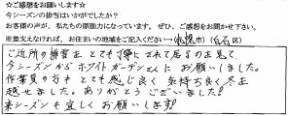 ☆ご感想をお願いします☆
今シーズンの排雪はいかがでしたか?
お客様の声が、私たちの原動力になっています。ぜひ、ご感想をお聞かせ下さい。
※差支えなければ、お住まいの地域をご記入ください→(札幌市)(白石区)
ご近所の排雪をとても されて居るのを見て、
今シーズンからホワイトガーデンさんにお願いしました。
作業員の方もとても感じ良く気持ち良く冬を
越せました。ありがとうございました!
来シーズンも宜しくお願いします!